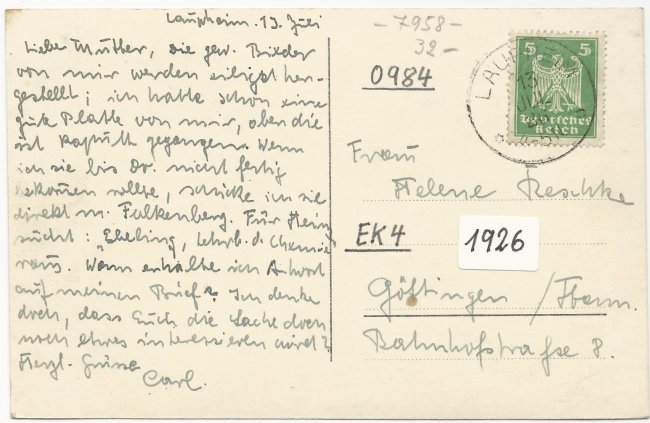 Laupheim. 13. Juli
Liebe Mutter, die gew. Bilder
von mir werden eiligst her-
gestellt; ich hatte schon eine
gute Platte von mir, aber die
ist kaputt gegangen. Wenn
ich sie bis Do. nicht fertig
bekommen sollte, schicke ich sie
direkt n. Falkenberg. Für Hein
sucht: "Ebeling, Lehrb. d. Chemie
raus. Wann erhalte ich Antwort
auf meinen Brief? Ich denke
doch, dass Euch die Sache doch
noch etwas interessieren wird?
Herzl. Grüsse
Carl.
-7958-
32-
0984
5 5
Deutsches
Reich
LAUPHE
13
JUL
Frau
Helene Reschke
EK4
1926
Göttingen / Hann.
Bahnhofstrafse 8.